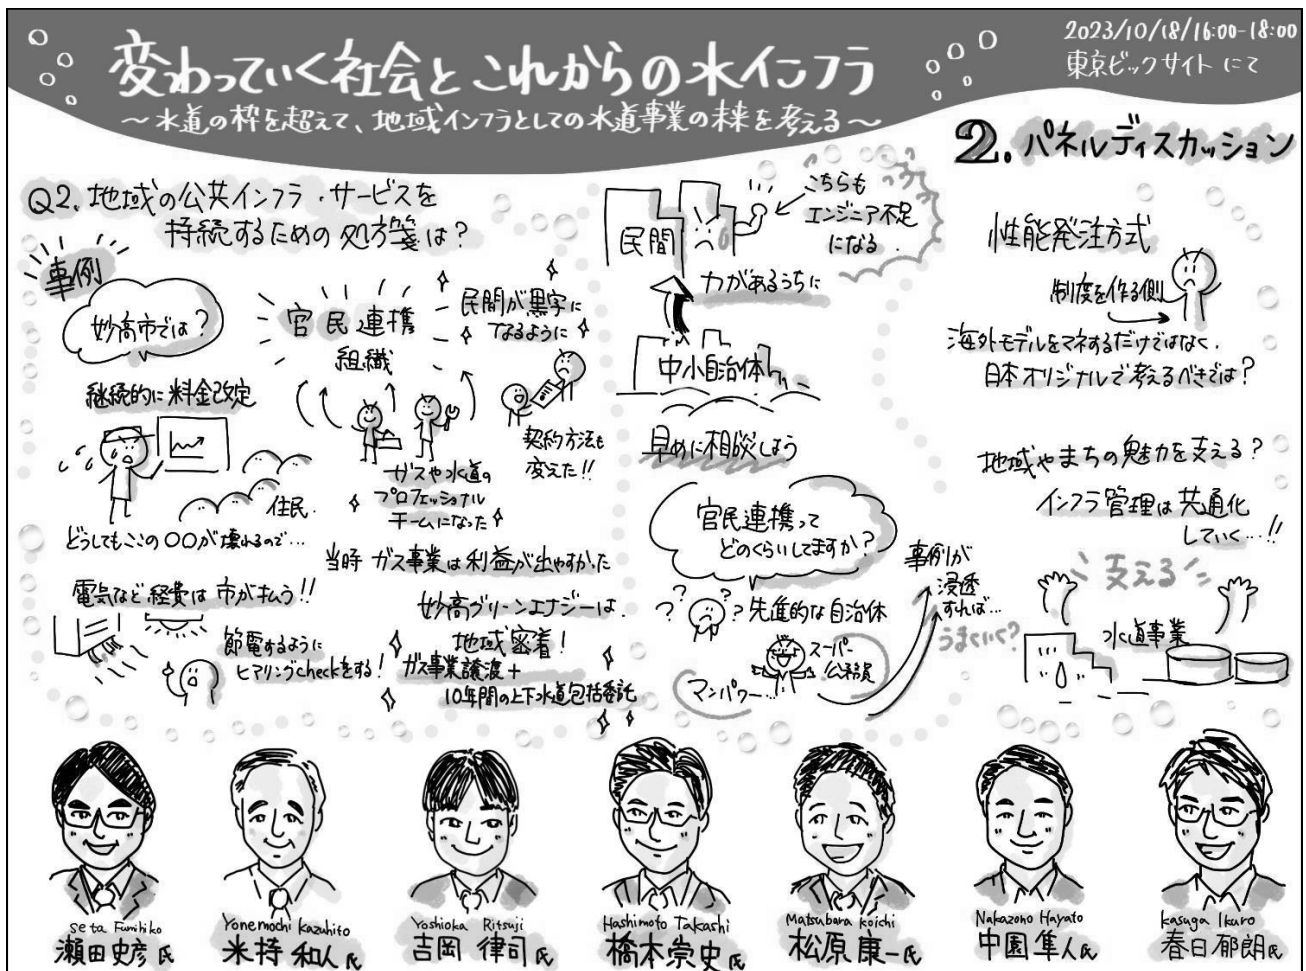 変わっていく社会とこれからの水インフラ
～水道の枠を超えて、地域インフラとしての水道事業の未来を考える～
2023/10/18/16:00-18:00
東京ビックサイトにて
2.パネルディスカッション
Q2.地域の公共インフラ・サービスを
持続するための処方箋は?
事例
妙高市では?
継続的に料金改定
住民
どうしてもここの〇〇が壊れるので…
電気など経費は市が払う!!
節電するように
ヒアリングcheckをする!
官民連携
組織
民間が黒字に
なるように
契約方法も
変えた!!
ガスや水道の
プロフェッショナル
チームになった
当時 ガス事業は利益が出やすかった
妙高グリーンエナジーは
地域密着!
ガス事業譲渡+
10年間の上下水道包括委託
民間
こちらも
エンジニア不足
になる.
力があるうちに
中小自治体
早めに相談しよう
官民連携って
どのくらいしてますか?
???
先進的な自治体
スーパー
公務員
マンパワー…
事例が
浸透
すれば…
うまくいく?
性能発注方式
制度を作る側
海外モデルをマネするだけではなく.
日本オリジナルで考えるべきでは?
地域やまちの魅力を支える?
インフラ管理は共通化
していく…!!
支える
水道事業
Seta Fumihiko
瀬田史彦氏
Yonemochi Kazuhito
米持和人氏
Yoshioka Ritsuji
吉岡律司氏
Hashimoto Takashi
橋本崇史氏
Matsubara Koichi
松原康一氏
Nakazono Hayato
中園隼人氏
Kasuga Ikuro
春日郁朗氏